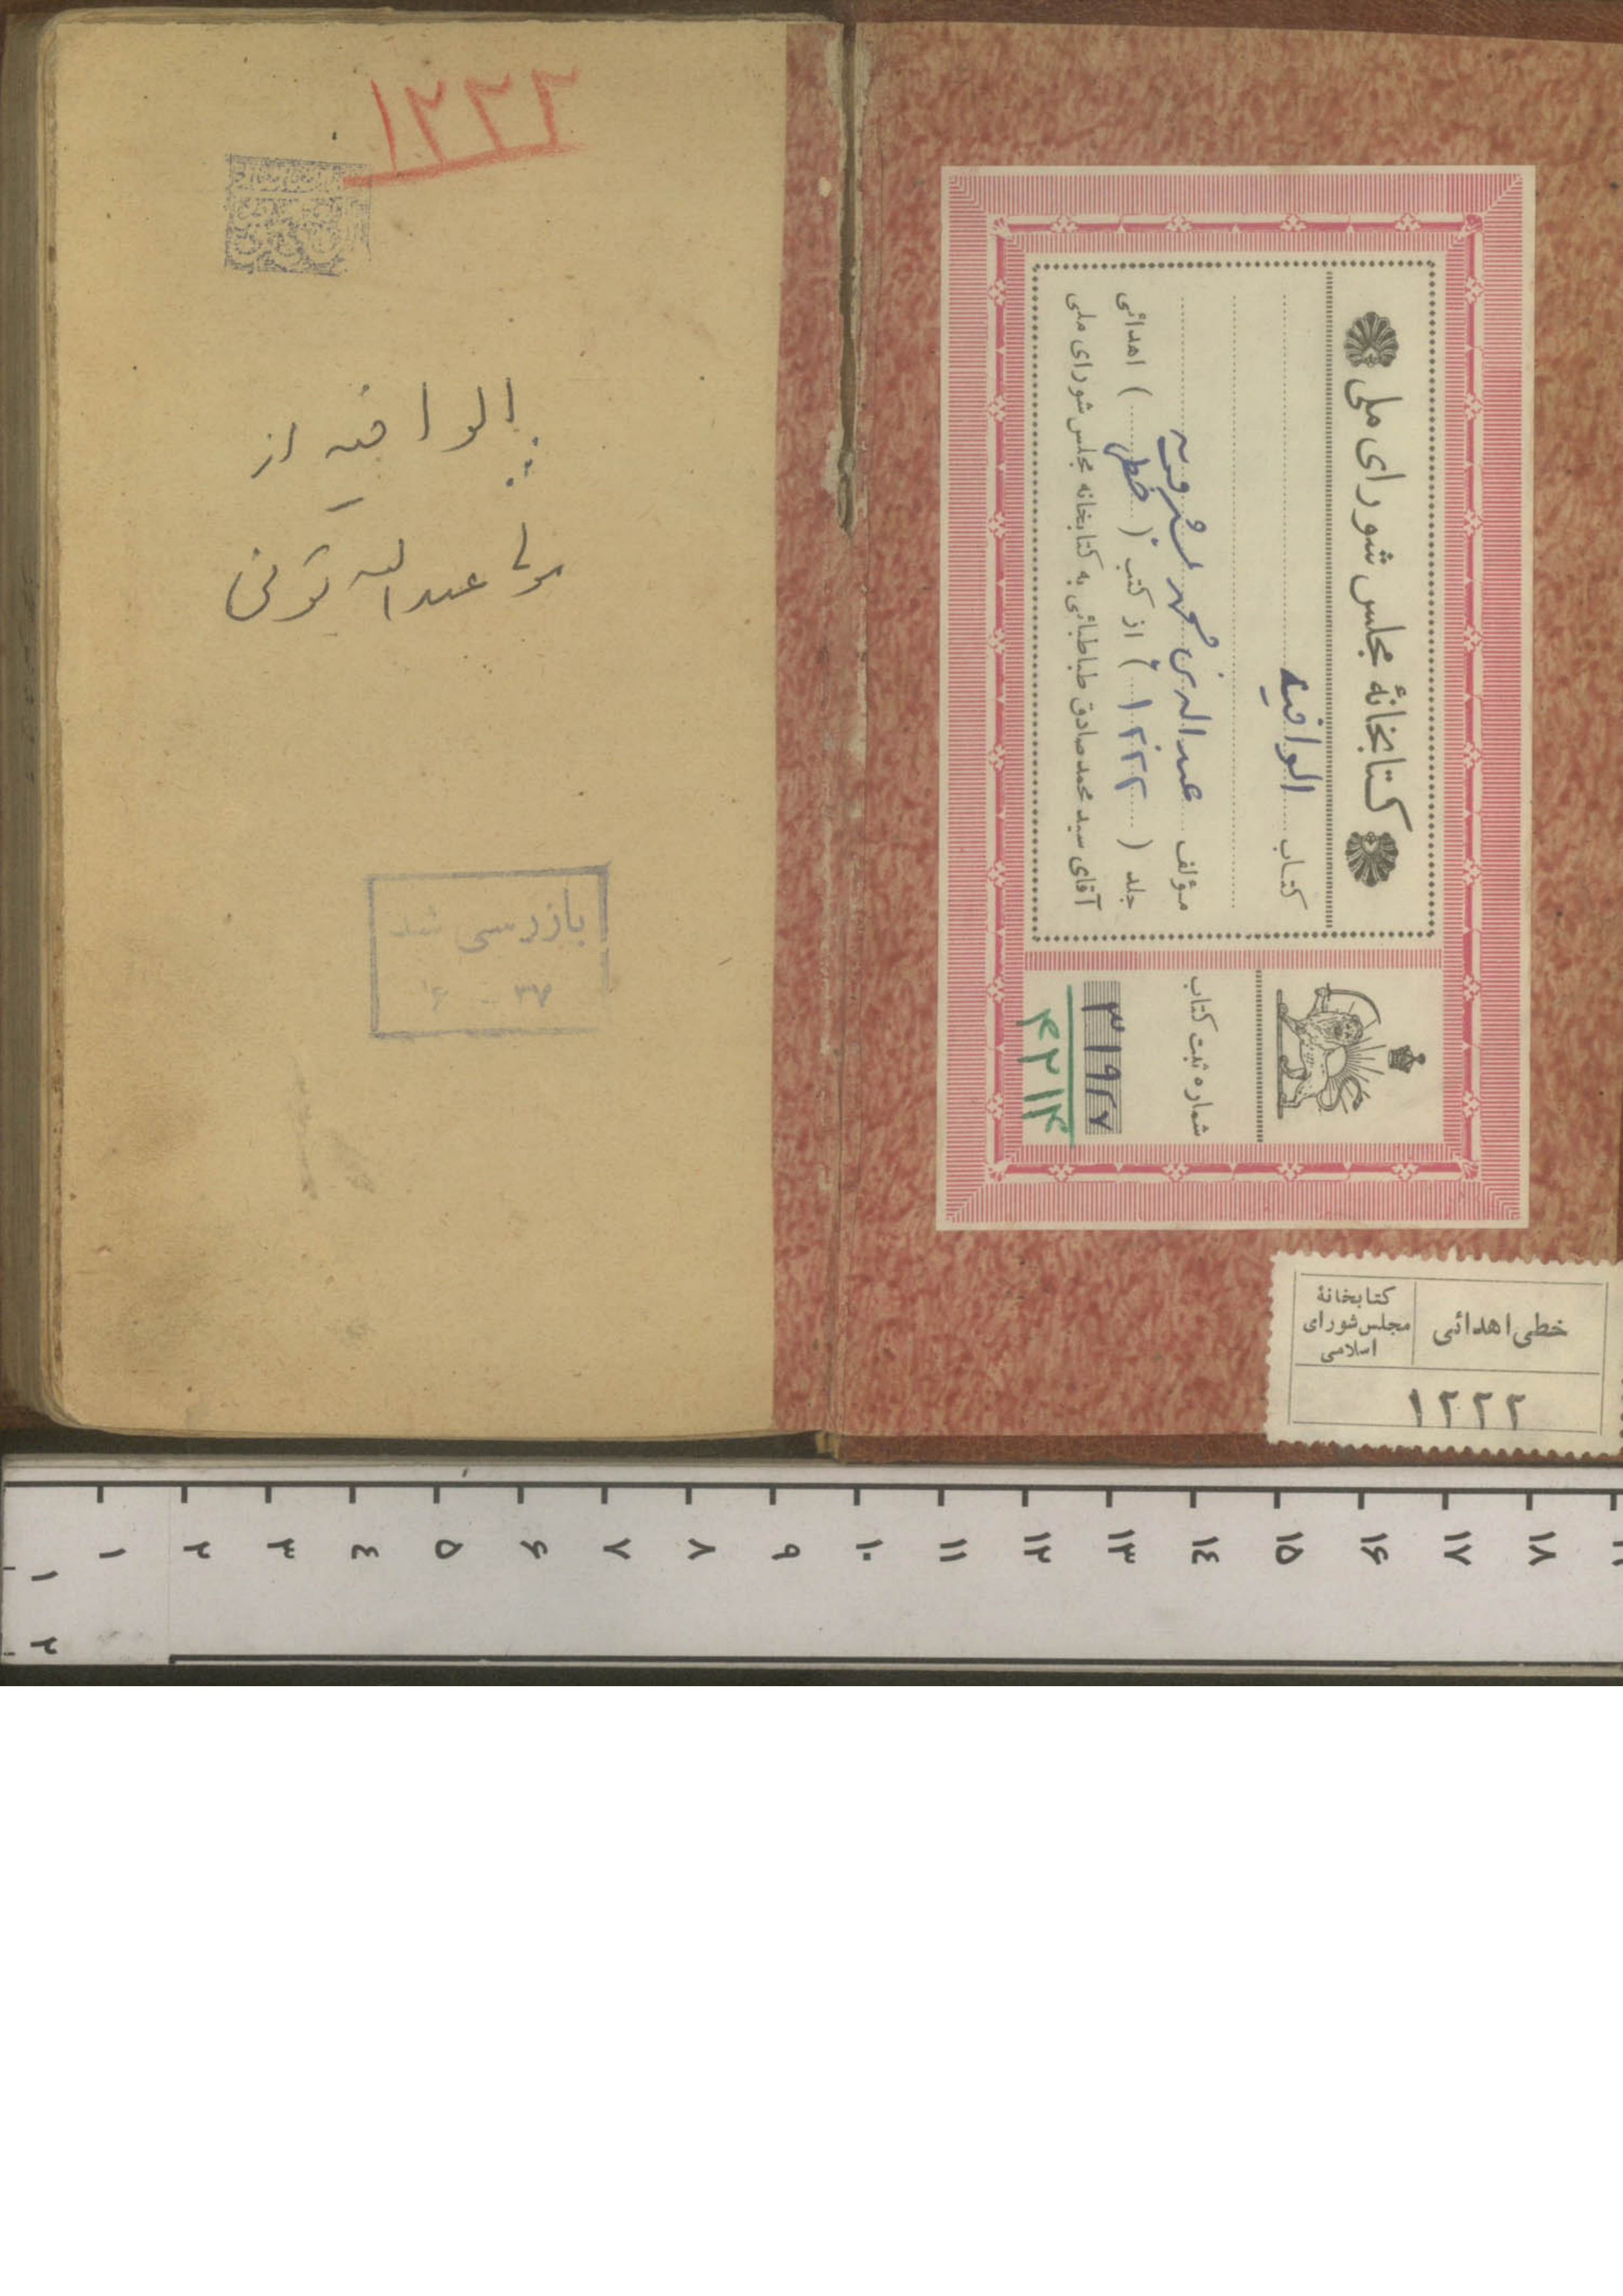 کتابخانهٔ مجلس شورای ملی
کتاب الوافیه
مؤلف عبدالله بن محمد بشرویه
جلد ( ۱۲۲۲ ) از کتب ( خطی ) اهدائی
آقای سید محمد صادق طباطبائی به کتابخانه مجلس شورای ملی
شماره ثبت کتاب
۳۱۹۲۷
۴۲۱۴
خطی اهدائی
کتابخانهٔ
مجلس شورای
اسلامی
۱۲۲۲
۱۲۲۲
الوافیه از
مولی عبدالله تونی
بازرسی شد
۳۷
۱ ۲ ۳ ٤ ۵ ۶ ۷ ۸ ۹ ۱۰ ۱۱ ۱۲ ۱۳ ۱٤ ۱۵ ۱۶ ۱۷ ۱۸
۱
۲